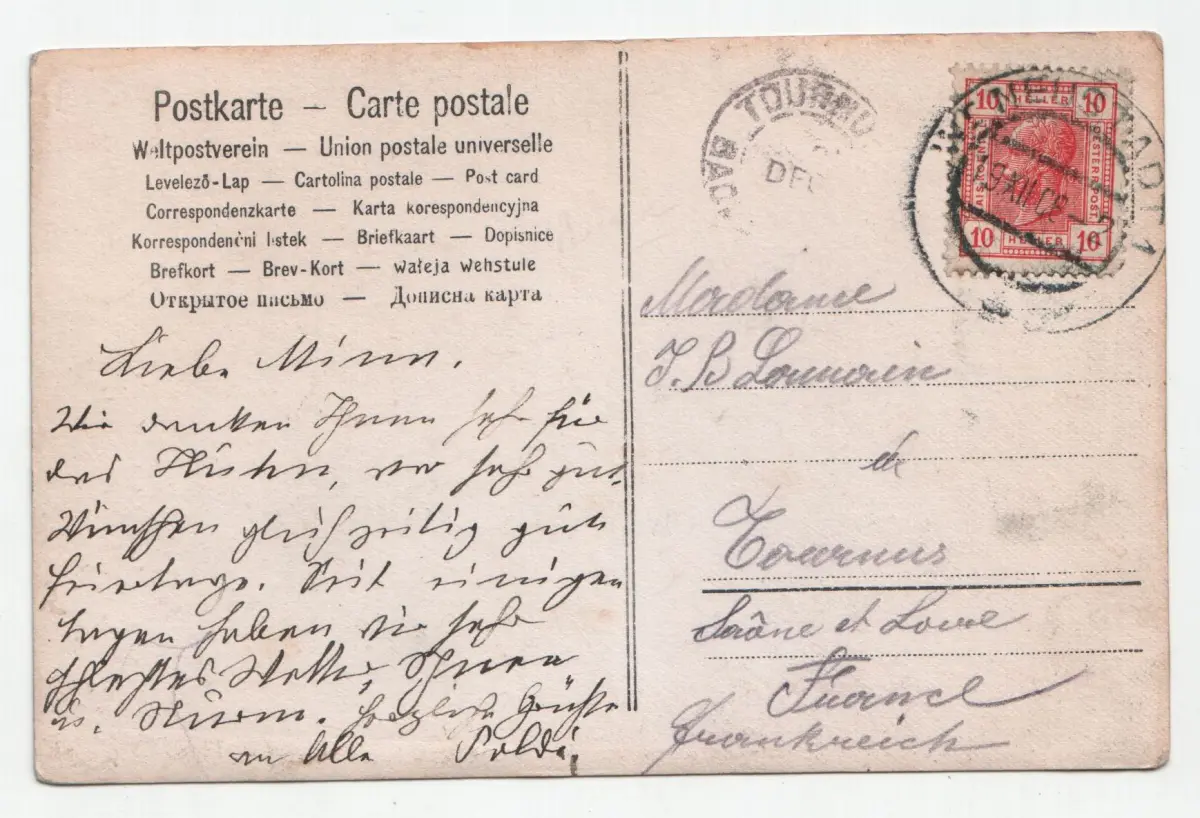 Postkarte — Carte postale
Weltpostverein — Union postale universelle
Levelező-Lap — Cartolina postale — Post card
Correspondenzkarte — Karta korespondencyjna
Korrespondenční lístek — Briefkaart — Dopisnice
Brefkort — Brev-Kort — Wałeja Wehstule
Открытое письмо — Дописна карта
Liebe Minna.
Wir danken Ihnen sehr für
das, war sehr gut.
Wünschen gleichzeitig gute
Feiertage. Seit einigen
tagen haben wir sehr
schlechtes Wetter,
u. Sturm. Herzliche Grüße
an Alle Poldi
TOURNU
DEC
10 HELLER 10
10 HELLER 10
19 XII 0
Madame
J. B
de
Tournus
Saône et Loire
France
Frankreich